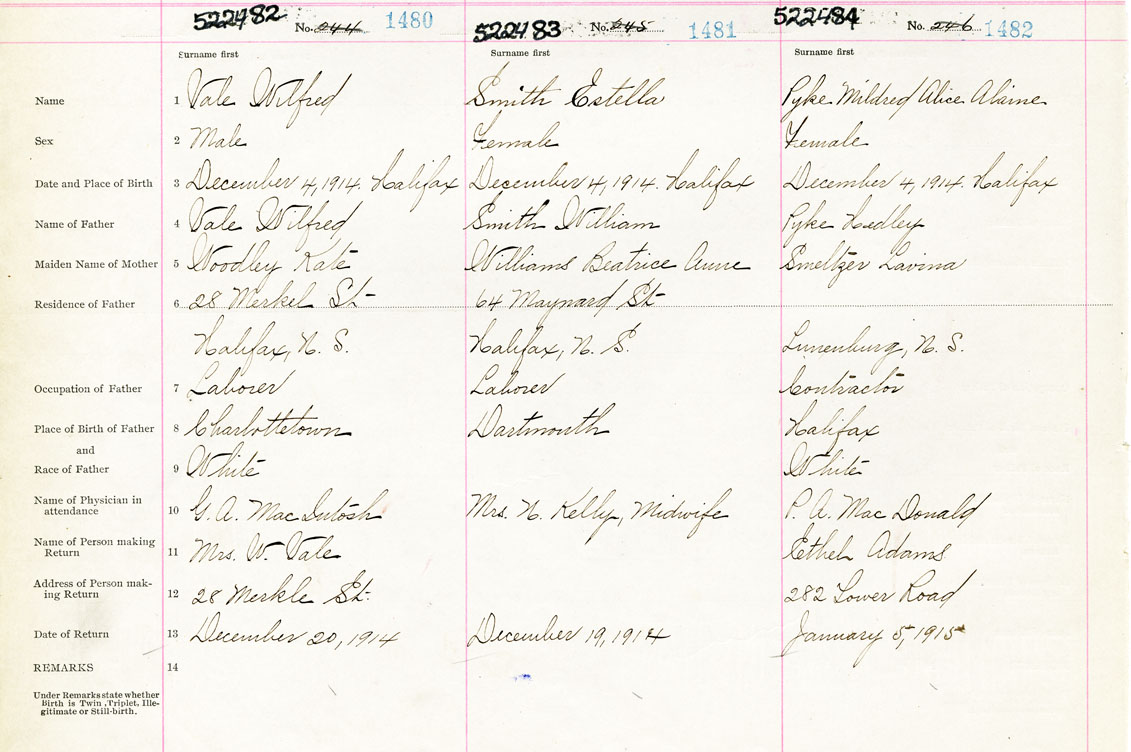 522482 No. 044 1480 522483 No. 045 1481 522484 No. 246 1482
Surname first Surname first Surname first
Name 1 Vale Wilfred Smith Estella Pyke Mildred Alice Alaine
Sex 2 Male Female Female
Date and Place of Birth 3 December 4, 1914. Halifax December 4, 1914. Halifax December 4, 1914. Halifax
Name of Father 4 Vale Wilfred Smith William Pyke Hedley
Maiden Name of Mother 5 Woodley Kate Williams Beatrice Anne Smeltzer Lavina
Residence of Father 6 28 Merkel St 64 Maynard St
Halifax, N. S. Halifax, N. S. Lunenburg, N. S.
Occupation of Father 7 Laborer Laborer Contractor
Place of Birth of Father 8 Charlottetown Dartmouth Halifax
and
Race of Father 9 White White
Name of Physician in
attendance 10 G. A. Mac Intosh Mrs. N. Kelly, Midwife P. A. Mac Donald
Name of Person making
Return 11 Mrs. W. Vale Ethel Adams
Address of Person mak-
ing Return 12 28 Merkle St. 282 Lower Road
Date of Return 13 December 20, 1914 December 19, 1914 January 5, 1915
REMARKS 14
Under Remarks state whether
Birth is Twin, Triplet, Ille-
gitimate or Still-birth.